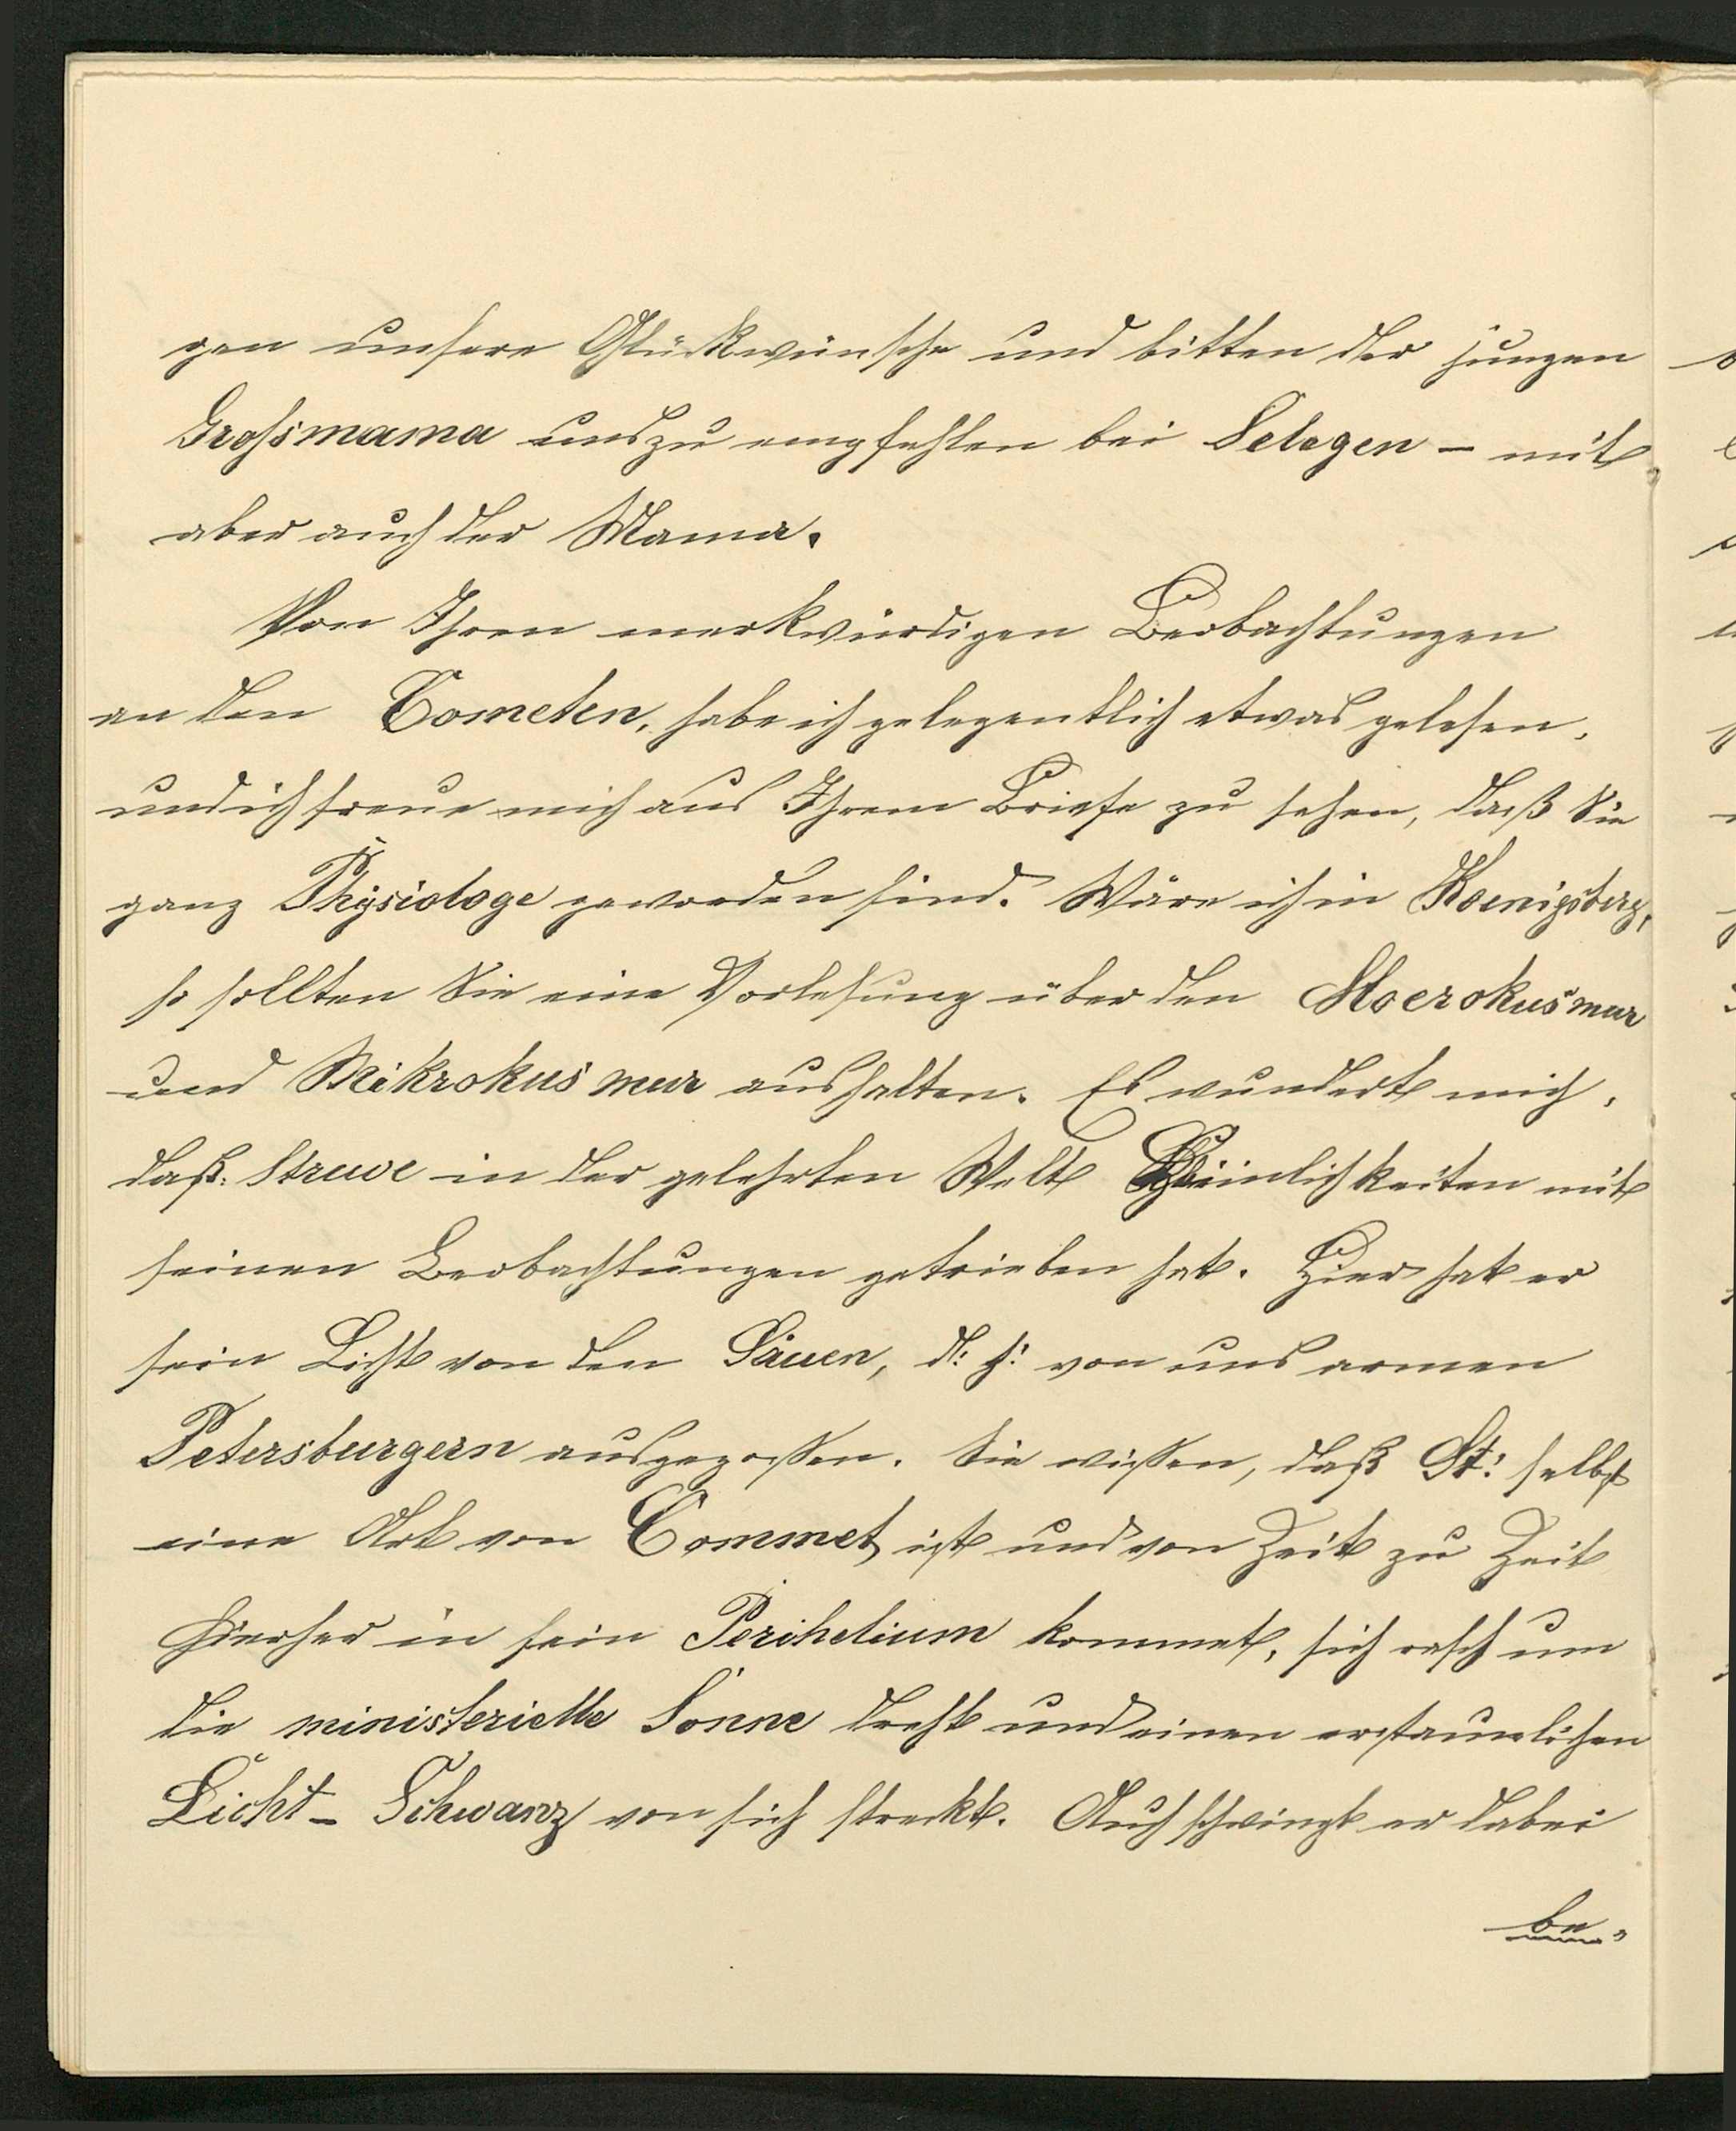 gen unsere Glückwünsche und bitten der jungen
Grossmama uns zu empfehlen bei Selegen – mit
aber auch der Mama.
Von Ihren merkwürdigen Beobachtungen
an den Cometen, habe ich gelegentlich etwas gelesen,
und ich freue mich aus Ihrem Briefe zu sehen, daß Sie
ganz Physiologe geworden sind. Wäre ich in Koenigsberg,
so sollten Sie eine Vorlesung über den
und Mikrokusmur aushalten. Es wundert mich,
daß Struve in der gelehrten Welt Heimlichkeiten mit
seinen Beobachtungen getrieben hat. Hier hat er
sein Licht von den Säuen, d: h: von uns armen
Petersburgern ausgegossen. Sie wissen, daß St: selbst
eine Art von Commet ist und von Zeit zu Zeit
hierher in sein Perihelium kommet, sich rasch um
die ministerielle Sonne dreht und einen erstaunlichen
Licht-Schwanz von sich streckt. Auch schwingt er dabei
be-